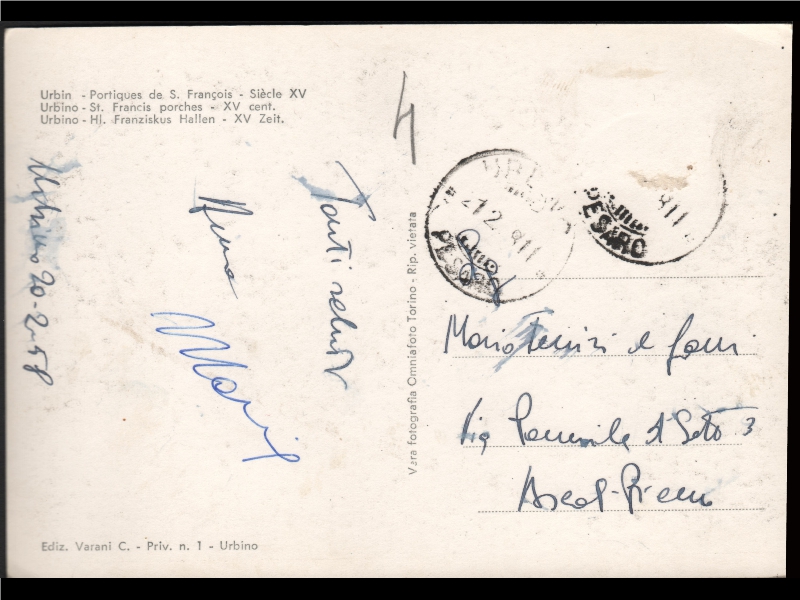 Urbin - Portiques de S. François - Siècle XV
Urbino - St. Francis porches - XV cent.
Urbino - Hl. Franziskus Hallen - XV Zeit.
Urbino 20-2-58
Tanti saluti
Anna
Maria
Vera fotografia Omniafoto Torino - Rip. vietata
PESARO
Mario
Via 3
Ascoli-Piceno
Ediz. Varani C. - Priv. n. 1 - Urbino